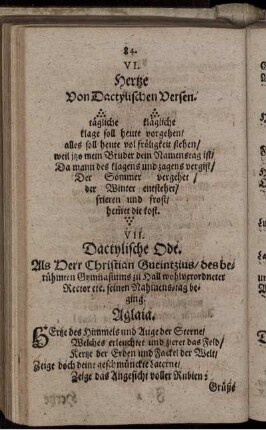 84.
VI.
Hertze
Von Dactylischen Versen.
tägliche klägliche
klage soll heute vorgehen/
alles soll heute vol fröligkeit stehen/
weil jzo mein Bruder dein Namenstag ist/
Da mann des klagens und zagens vergist/
Der Sommer vergehet/
der Winter entstehet/
frieren und frost/
heutet die kost.
VII.
Dactylische Ode.
Als Herr Christian Gueintzius/ des be-
rühmten Gymnasiums zu Hall wohlverordneter
Rector etc. seinen Nahmenstag be-
ging.
Aglaia.
HErtze des Himmels und Auge der Sterne/
Welches erleuchtet und zieret das Feld/
Kertze der Erden und Fackel der Welt/
Zeige doch deine geschmückte Laterne/
Zeige das Angesicht voller Rubien:
Grüsse